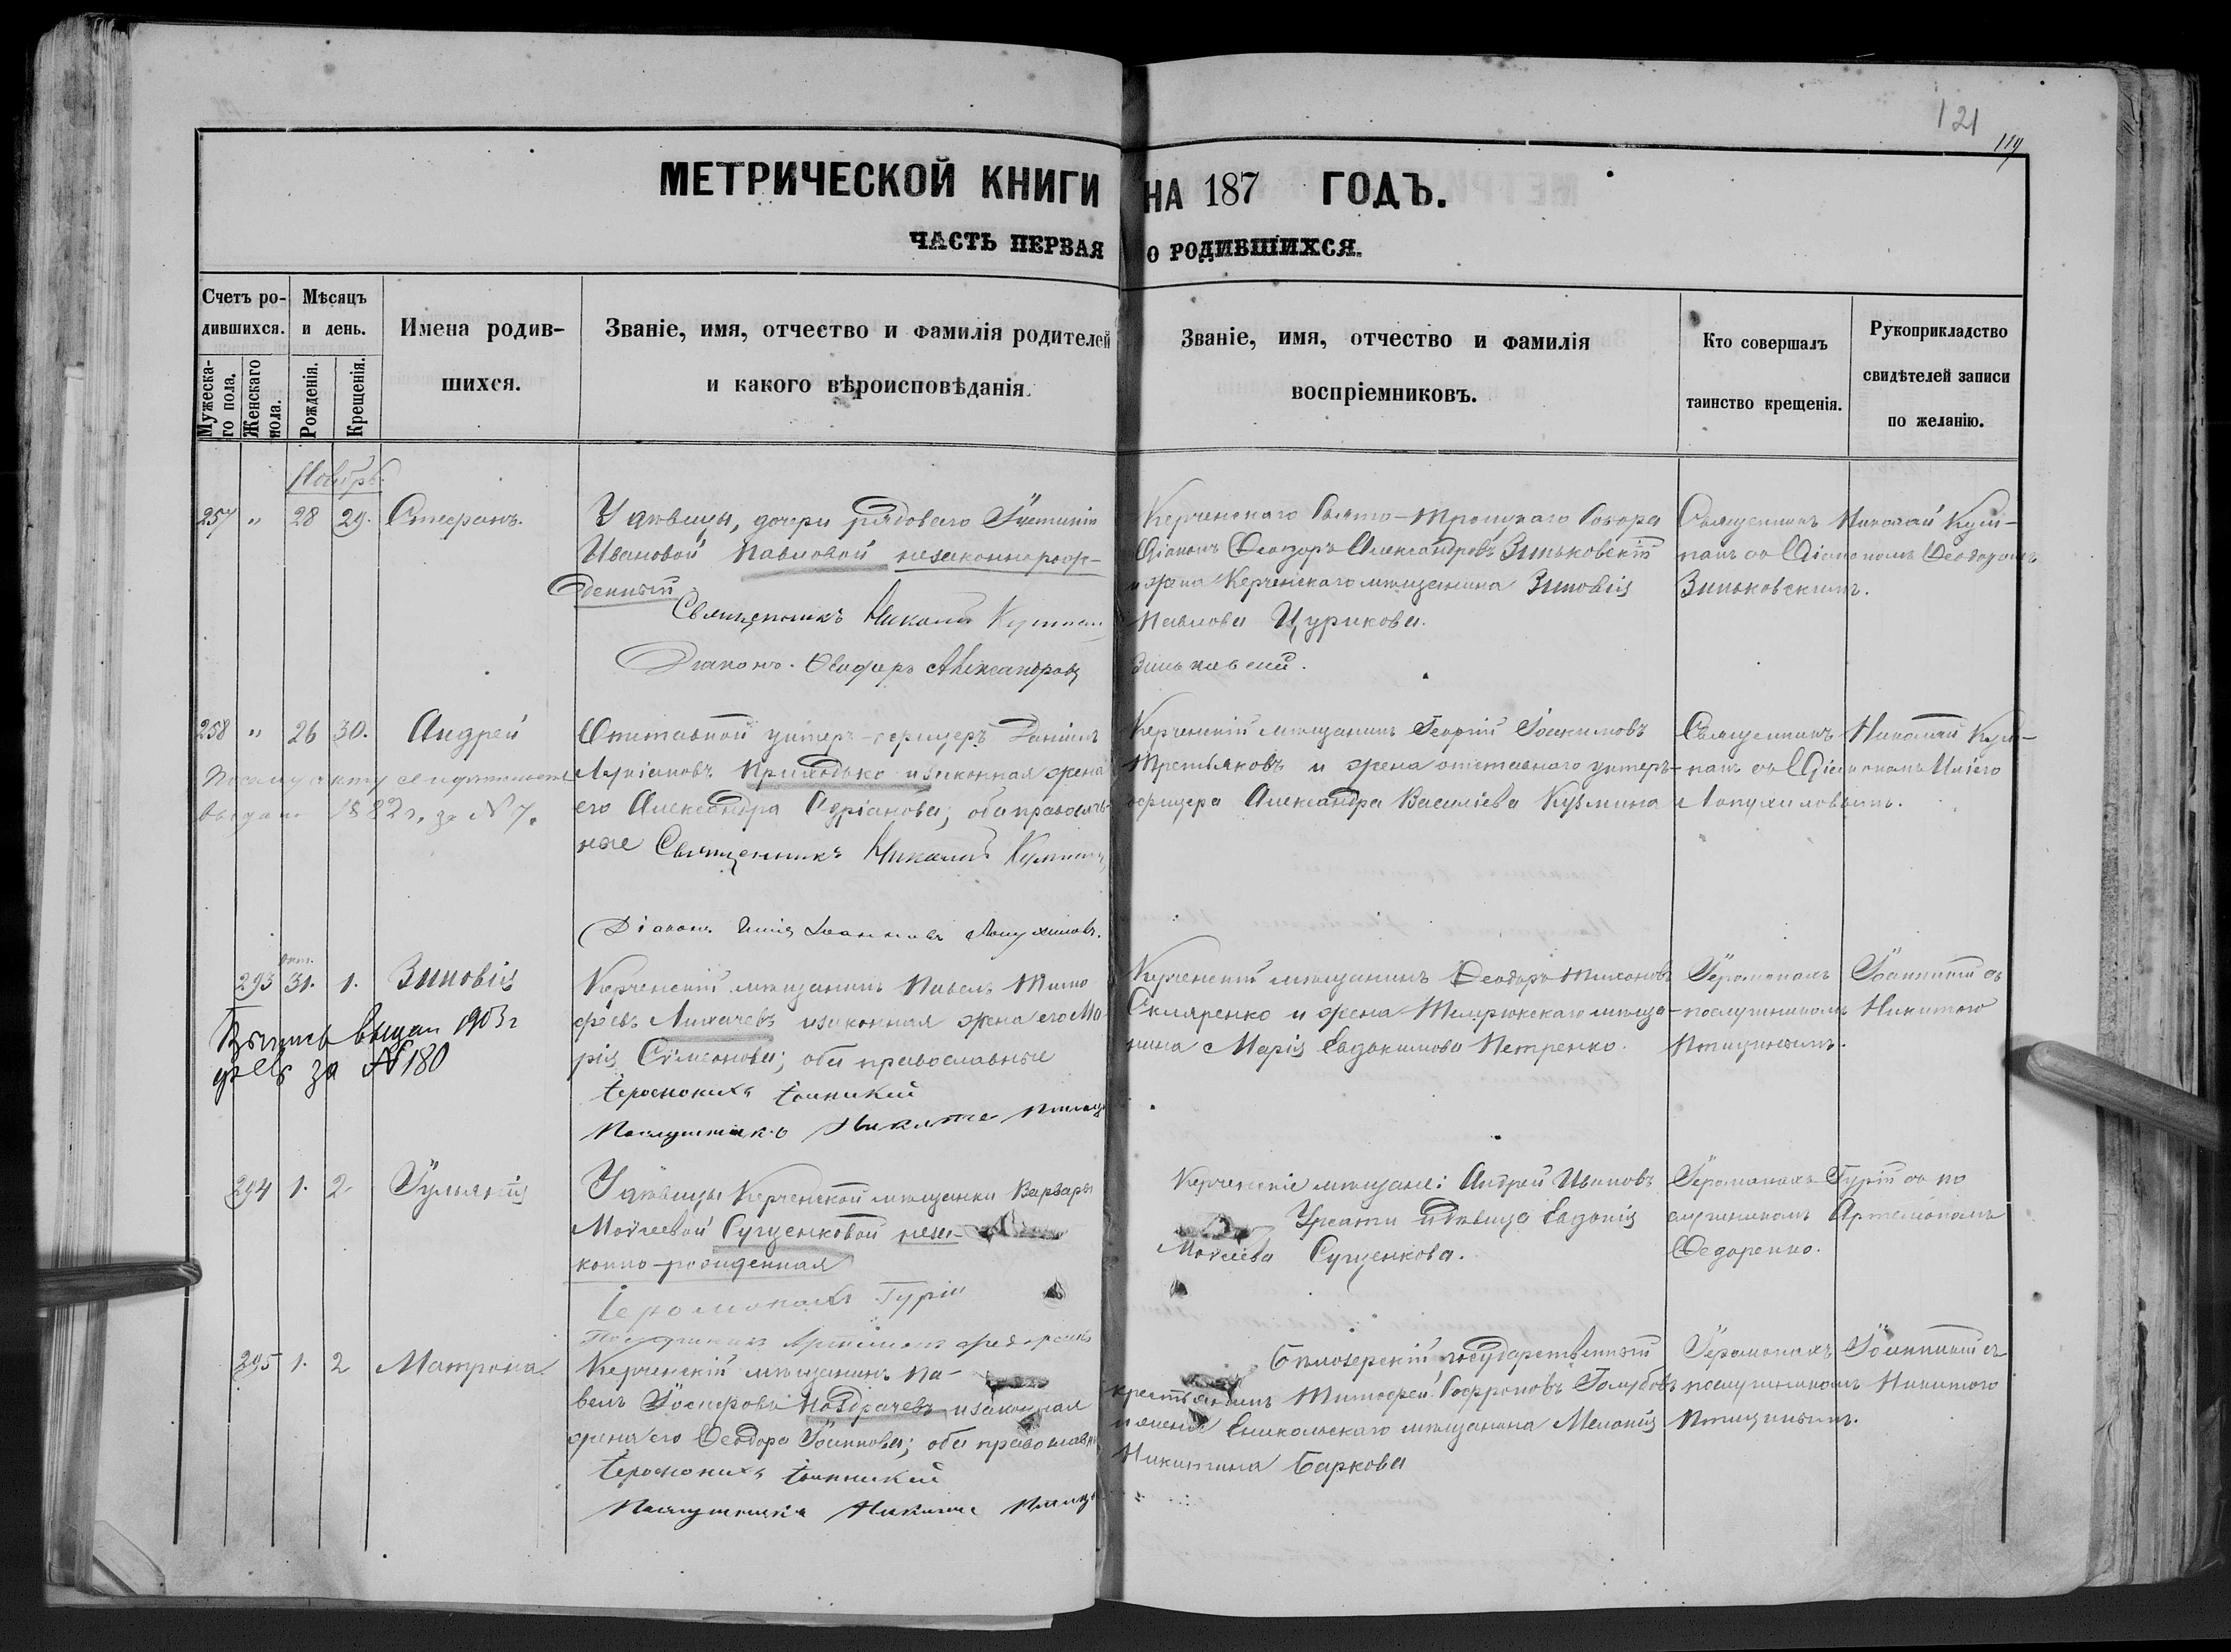 121
119
МЕТРИЧЕСКОЙ КНИГИ НА 187 ГОДЪ.
ЧАСТЬ ПЕРВАЯ О РОДИВШИХСЯ.
Счетъ ро-
дившихся.
Мужеска-
го пола.
Женскаго
пола.
Мѣсяцъ
и день.
Рожденія.
Крещенія.
Имена родив-
шихся.
Званіе, имя, отчество и фамилія родителей
и какого вѣроисповѣданія.
Званіе, имя, отчество и фамилія
воспріемниковъ.
Кто совершалъ
таинство крещенія.
Рукоприкладство
свидѣтелей записи
по желанію.
Ноябрь.
257 " 28 29. Стефанъ.
У дѣвицы, дочери рядоваго Іустиніи
Ивановой Павловой незаконнорож-
денный
Священникъ Николай
Діаконъ Ѳеодоръ Александровъ
Керченскаго Свято-Троицкаго Собора
Діаконъ Ѳеодоръ Александровъ Зиньковскій
и жена Керченскаго мѣщанина Зиновія
Павлова Цурикова.
Зиньковскій.
Священникъ Николай
съ Діакономъ Ѳеодоромъ
Зиньковскимъ.
258 " 26 30. Андрей
По сему акту свидѣтельство
выдано 1882 г. за № 7.
Отставной унтеръ-офицеръ Даніилъ
Приходько и законная жена
его Александра Адріанова; оба православ-
ные Священникъ Николай
Діаконъ Илія Іоанновъ Лопухиловъ.
Керченскій мѣщанинъ Георгій Іоакимовъ
Третьяковъ и жена отставнаго унтеръ-
офицера Александра Василіева Кузмина
Священникъ Николай
съ Діакономъ Иліею
Лопухиловымъ.
293 31. 1. Зиновія
выдана 1903 г
за № 180
Керченскій мѣщанинъ Павелъ Тимо
феевъ Лихачевъ и законная жена его Ма-
рія Сѵмеонова; оба православные
Іеромонахъ Іоанникій
Послушникъ Никита
Керченскій мѣщанинъ Ѳеодоръ Тихоновъ
Скляренко и жена Темрюкскаго мѣща-
нина Марія Евдокимова Петренко.
Іеромонахъ Іоанникій съ
послушникомъ Никитою
Птицинымъ.
294 1. 2. Іуліанія
У дѣвицы Керченской мѣщанки Варвары
Моѵсеевой Сущенковой неза-
конно-рожденная
Іеромонахъ Гурій
Послушникъ Артемонъ Федоренко
Керченскіе мѣщане: Андрей Ивановъ
и дѣвица Евдокія
Моѵсеева Сущенкова.
Іеромонахъ Гурій съ по
слушникомъ Артемономъ
Ѳедоренко.
295 1. 2 Матрона.
Керченскій мѣщанинъ Па-
велъ Іосифовъ Ноздрачевъ и законная
жена его Ѳеодора Іоаннова; оба православн
Іеромонахъ Іоанникій
Послушникъ Никита
Бѣлозерскій государственный
крестьянинъ Тимофей Софроновъ Голубовъ
и жена Еникольскаго мѣщанина Меланія
Никитина Баркова
Іеромонахъ Іоанникій съ
послушникомъ Никитою
Птицинымъ.